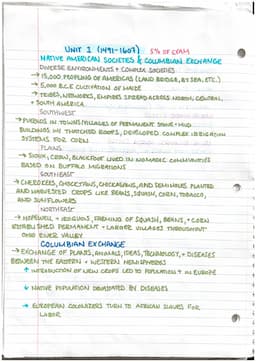 UNIT 1 (1491-1607) 5% OF EXAM
NATIVE AMERICAN SOCIETIES & COLUMBIAN EXCHANGE
DIVERSE ENVIRONMENTS + COMPLEX SOCIETIES
→ 15,000 PEOPLING OF AMERICAS (LAND BRIDGE, BY SEA, ETC.)
→ 5,000 B.C.E CULTIVATION OF MAIZE
→ TRIBES, NETWORKS, EMPIRES SPREAD ACROSS NORTH, CENTRAL,
+ SOUTH AMERICA
SOUTHWEST
→ PUEBLOS IN TOWNS/VILLAGES OF PERMANENT STONE + MUD
BUILDINGS W/ THATCHED ROOFS, DEVELOPED COMPLEX IRRIGATION
SYSTEMS FOR CORN
PLAINS
→ SIOUX, CROW, BLACKFOOT LIVED IN NOMADIC COMMUNITIES
BASED ON BUFFALO MIGRATIONS
SOUTHEAST
→ CHEROKEES, CHOCTAWS, CHICKASAWS, AND SEMINOLES PLANTED
AND HARVESTED CROPS LIKE BEANS, SQUASH, CORN, TOBACCO,
AND SUNFLOWERS
NORTHEAST
→ HOPEWELL + IROQUOIS, FARMING OF SQUASH, BEANS, + CORN
ESTABLISHED PERMANENT + LARGER VILLAGES THROUGHOUT
OHIO RIVER VALLEY
COLUMBIAN EXCHANGE
→ EXCHANGE OF PLANTS, ANIMALS, IDEAS, TECHNOLOGY, + DISEASES
BETWEEN THE EASTERN + WESTERN HEMISPHERES
↑ INTRODUCTION OF NEW CROPS LED TO POPULATION ↑ IN EUROPE
↓ NATIVE POPULATION DEVASTATED BY DISEASES
→ EUROPEAN COLONIZERS TURN TO AFRICAN SLAVES FOR
LABOR